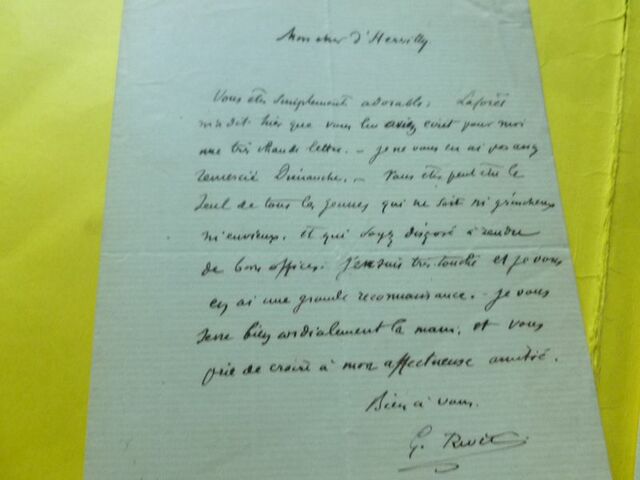 Mon cher d'Hervilly
Vous êtes simplement adorable. Laforêt
m'a dit hier que vous lui aviez écrit pour moi
une très chaude lettre. — je ne vous en ai pas assez
remercié Dimanche. — Vous êtes peut être le
seul de tous les jeunes qui ne soit ni grincheux
ni envieux, et qui soyez disposé à rendre
de bons offices. J'en suis très touché et je vous
en ai une grande reconnaissance. — je vous
serre bien cordialement la main, et vous
prie de croire à mon affectueuse amitié.
Bien à vous.
G. Rivet